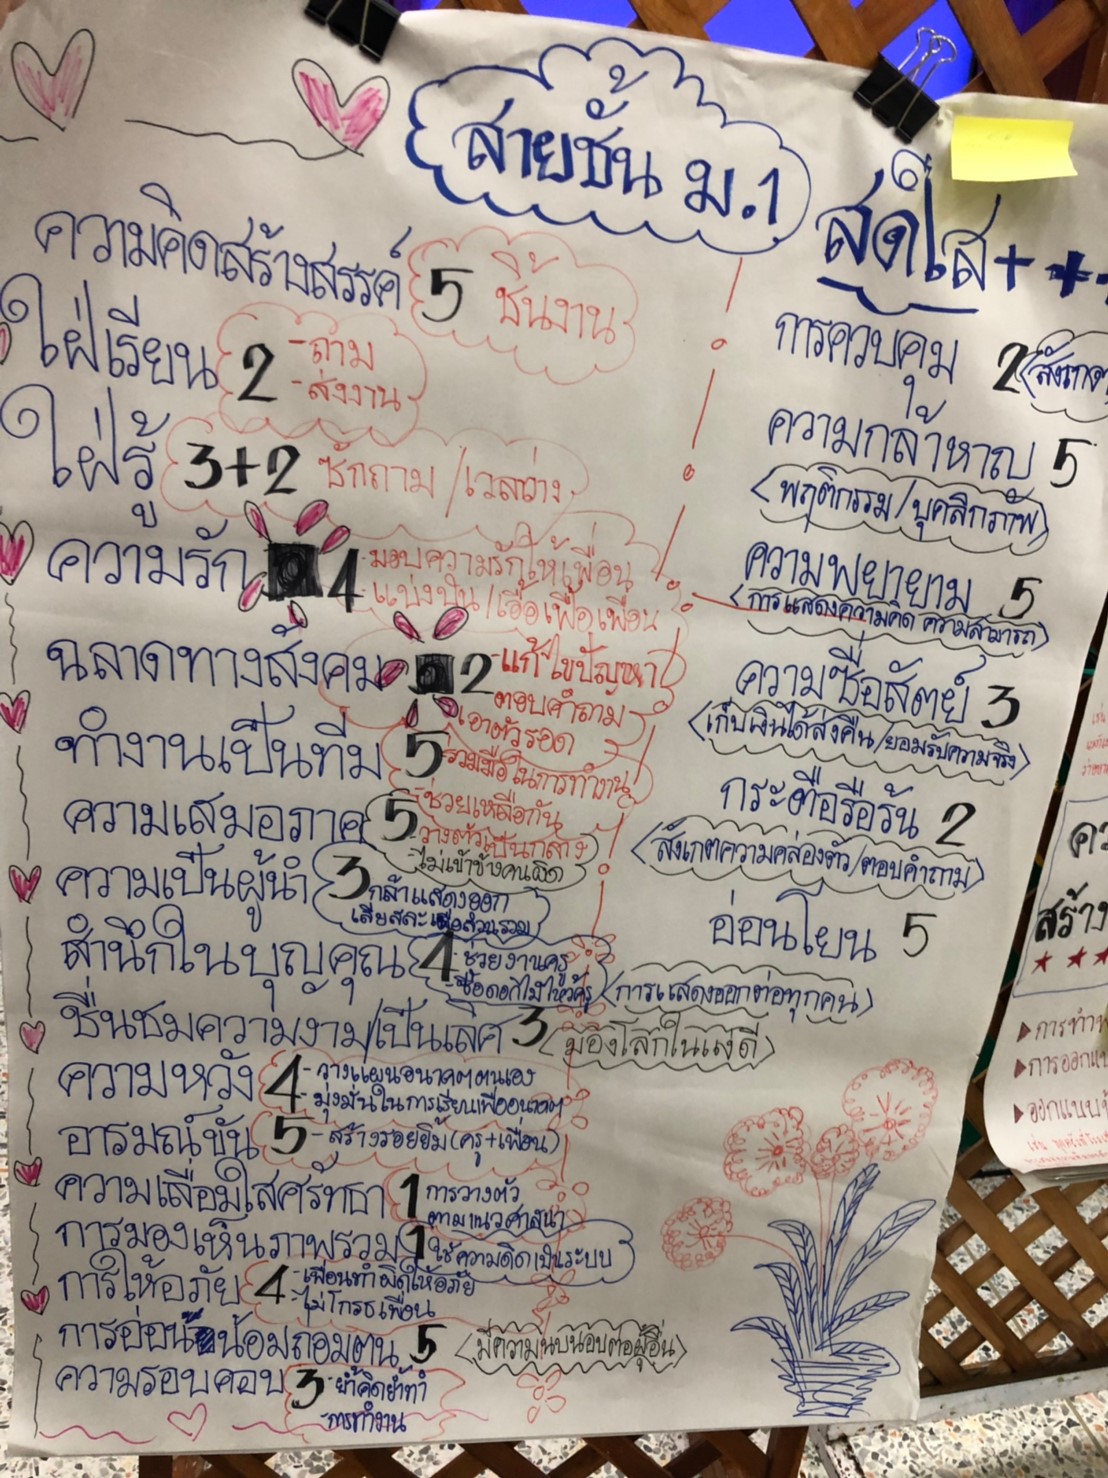 สายชั้น ม.1
สดใส+++
ความคิดสร้างสรรค์ 5 ชิ้นงาน
ใฝ่เรียน 2 -ถาม
-ส่งงาน
ใฝ่รู้ 3+2 ซักถาม/เวลว่าง
ความรัก 4 -มอบความรักให้เพื่อน
-แบ่งปัน/เอื้อเฟื้อเพื่อน
ฉลาดทางสังคม 2 -แก้ไขปัญหา
ตอบคำถาม
เอาตัวรอด
ทำงานเป็นทีม 5 -ร่วมมือในการทำงาน
-ช่วยเหลือกัน
ความเสมอภาค 5 -วางตัวเป็นกลาง
-ไม่เข้าข้างคนผิด
ความเป็นผู้นำ 3 กล้าแสดงออก
เสียสละเพื่อส่วนรวม
สำนึกในบุญคุณ 4 -ช่วยงานครู
-ซื้อดอกไม้ไหว้ครู
ชื่นชมความงาม/เป็นเลิศ 3 มองโลกในแง่ดี
ความหวัง 4 -วางแผนอนาคตตนเอง
-มุ่งมั่นในการเรียนเพื่ออนาคต
อารมณ์ขัน 5 -สร้างรอยยิ้ม(ครู+เพื่อน)
ความเลื่อมใสศรัทธา 1 การวางตัว
ตามแนวศาสนา
การมองเห็นภาพรวม 1 ใช้ความคิดเป็นระบบ
การให้อภัย 4 -เพื่อนทำผิดให้อภัย
-ไม่โกรธเพื่อน
การอ่อนน้อมถอมตน 5 มีความนบนอบต่อผู้อื่น
ความรอบคอบ 3 -ย้ำคิดย้ำทำ
-การทำงาน
การควบคุม 2
ความกล้าหาญ 5
พฤติกรรม/บุคลิกภาพ
ความพยายาม 5
การแสดงความคิด ความสามารถ
ความซื่อสัตย์ 3
เก็บเงินได้ส่งคืน/ยอมรับความจริง
กระตือรือร้น 2
สังเกตความคล่องตัว/ตอบคำถาม
อ่อนโยน 5
การแสดงออกต่อทุกคน
สร้าง